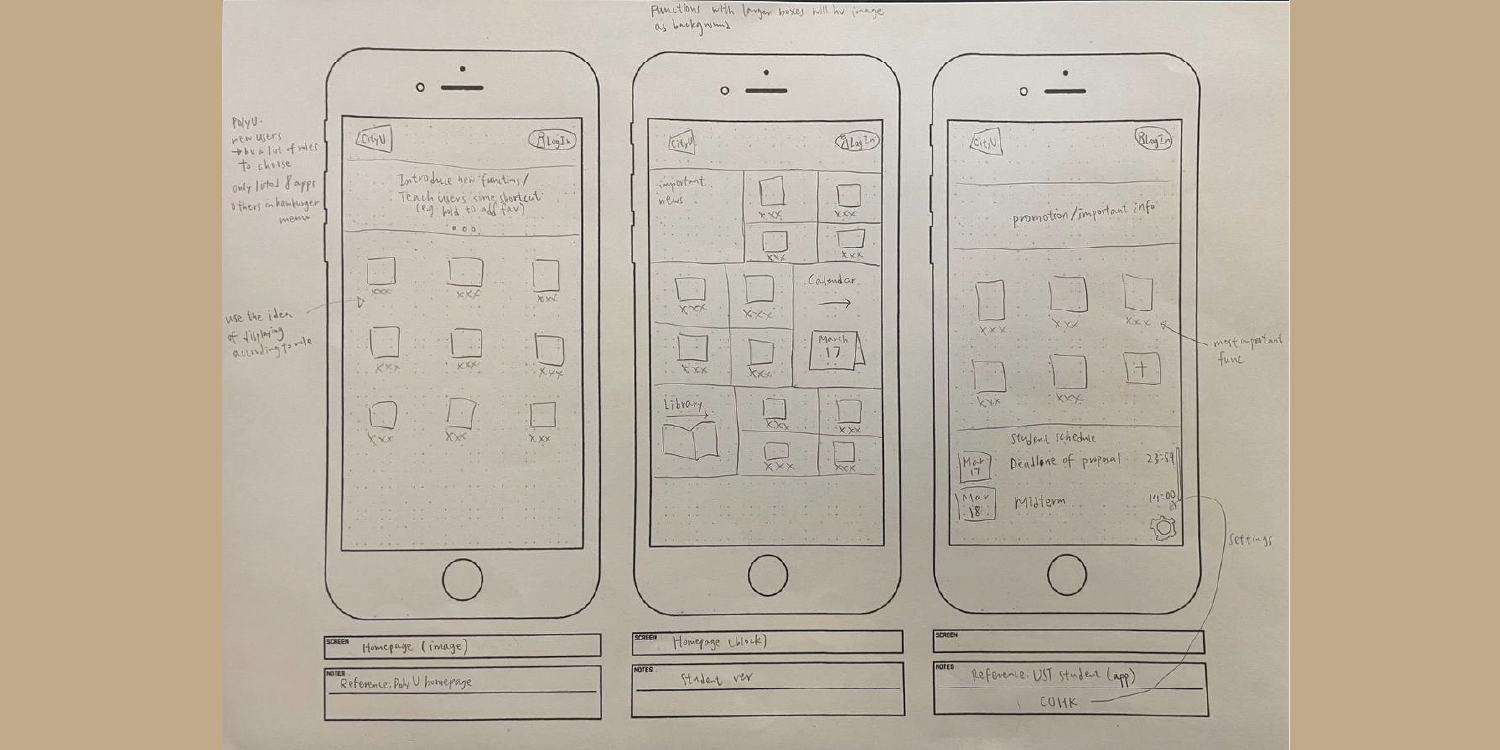 Functions with larger boxes will hv image
as background
PolyU:
new users
→ hv a list of roles
to choose
only listed 8 apps
others on hamburger
menu
use the idea
of displaying
according to role
CityU
LogIn
Introduce new functions/
Teach users some shortcut
(eg hold to add fav)
xxx
xxx
xxx
xxx
xxx
xxx
xxx
xxx
xxx
SCREEN
Homepage (image)
NOTES
Reference: PolyU homepage
CityU
LogIn
important
news
xxx
xxx
xxx
xxx
xxx
xxx
Calendar
→
March
17
xxx
xxx
Library
→
xxx
xxx
xxx
xxx
SCREEN
Homepage (block)
NOTES
Student ver
CityU
LogIn
promotion/important info
xxx
xxx
xxx
most important
func
xxx
xxx
+
Student schedule
Mar
17
Deadline of proposal
23:59
Mar
18
Midterm
Settings
SCREEN
NOTES
Reference: UST student (app)
CUHK